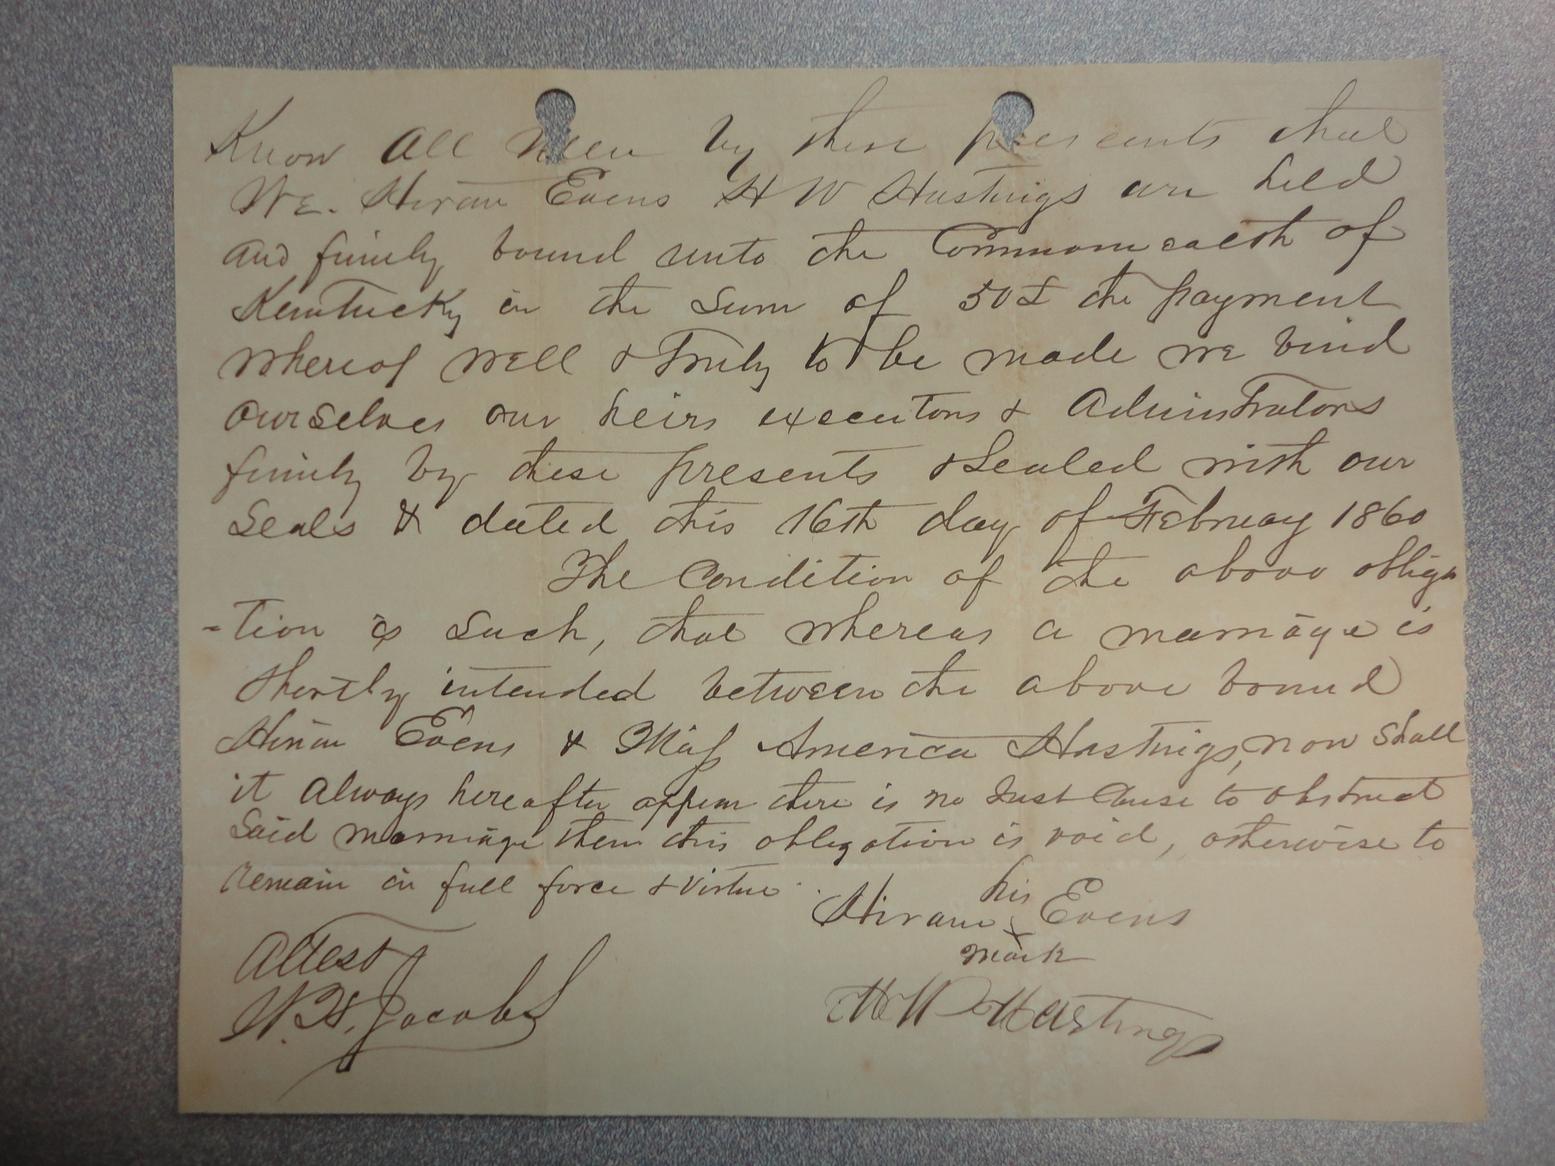 Know All Men by these presents that
We. Hiram Evens H W Hastings are held
and firmly bound unto the Commonwealth of
Kentucky in the Sum of 50£ the payment
whereof well & Truly to be made we bind
ourselves our heirs executors & Administrators
firmly by these presents & Sealed with our
Seals & dated this 16th day of February 1860
The Condition of the above obliga
-tion is Such, that whereas a marriage is
Shortly intended between the above bound
Hiram Evens & Miss America Hastings, now Shall
it Always hereafter appear there is no Just Cause to obstruct
Said marriage then this obligation is void, otherwise to
remain in full force & virtue
his
Hiram x Evens
mark
Attest
W. H. Jacobs
H W Hastings